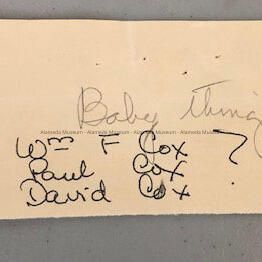 Baby thing
Alameda Museum - Alameda Museum - Alameda Museum - Alameda Museum
Wm F Cox ?
Paul Cox
David Cox